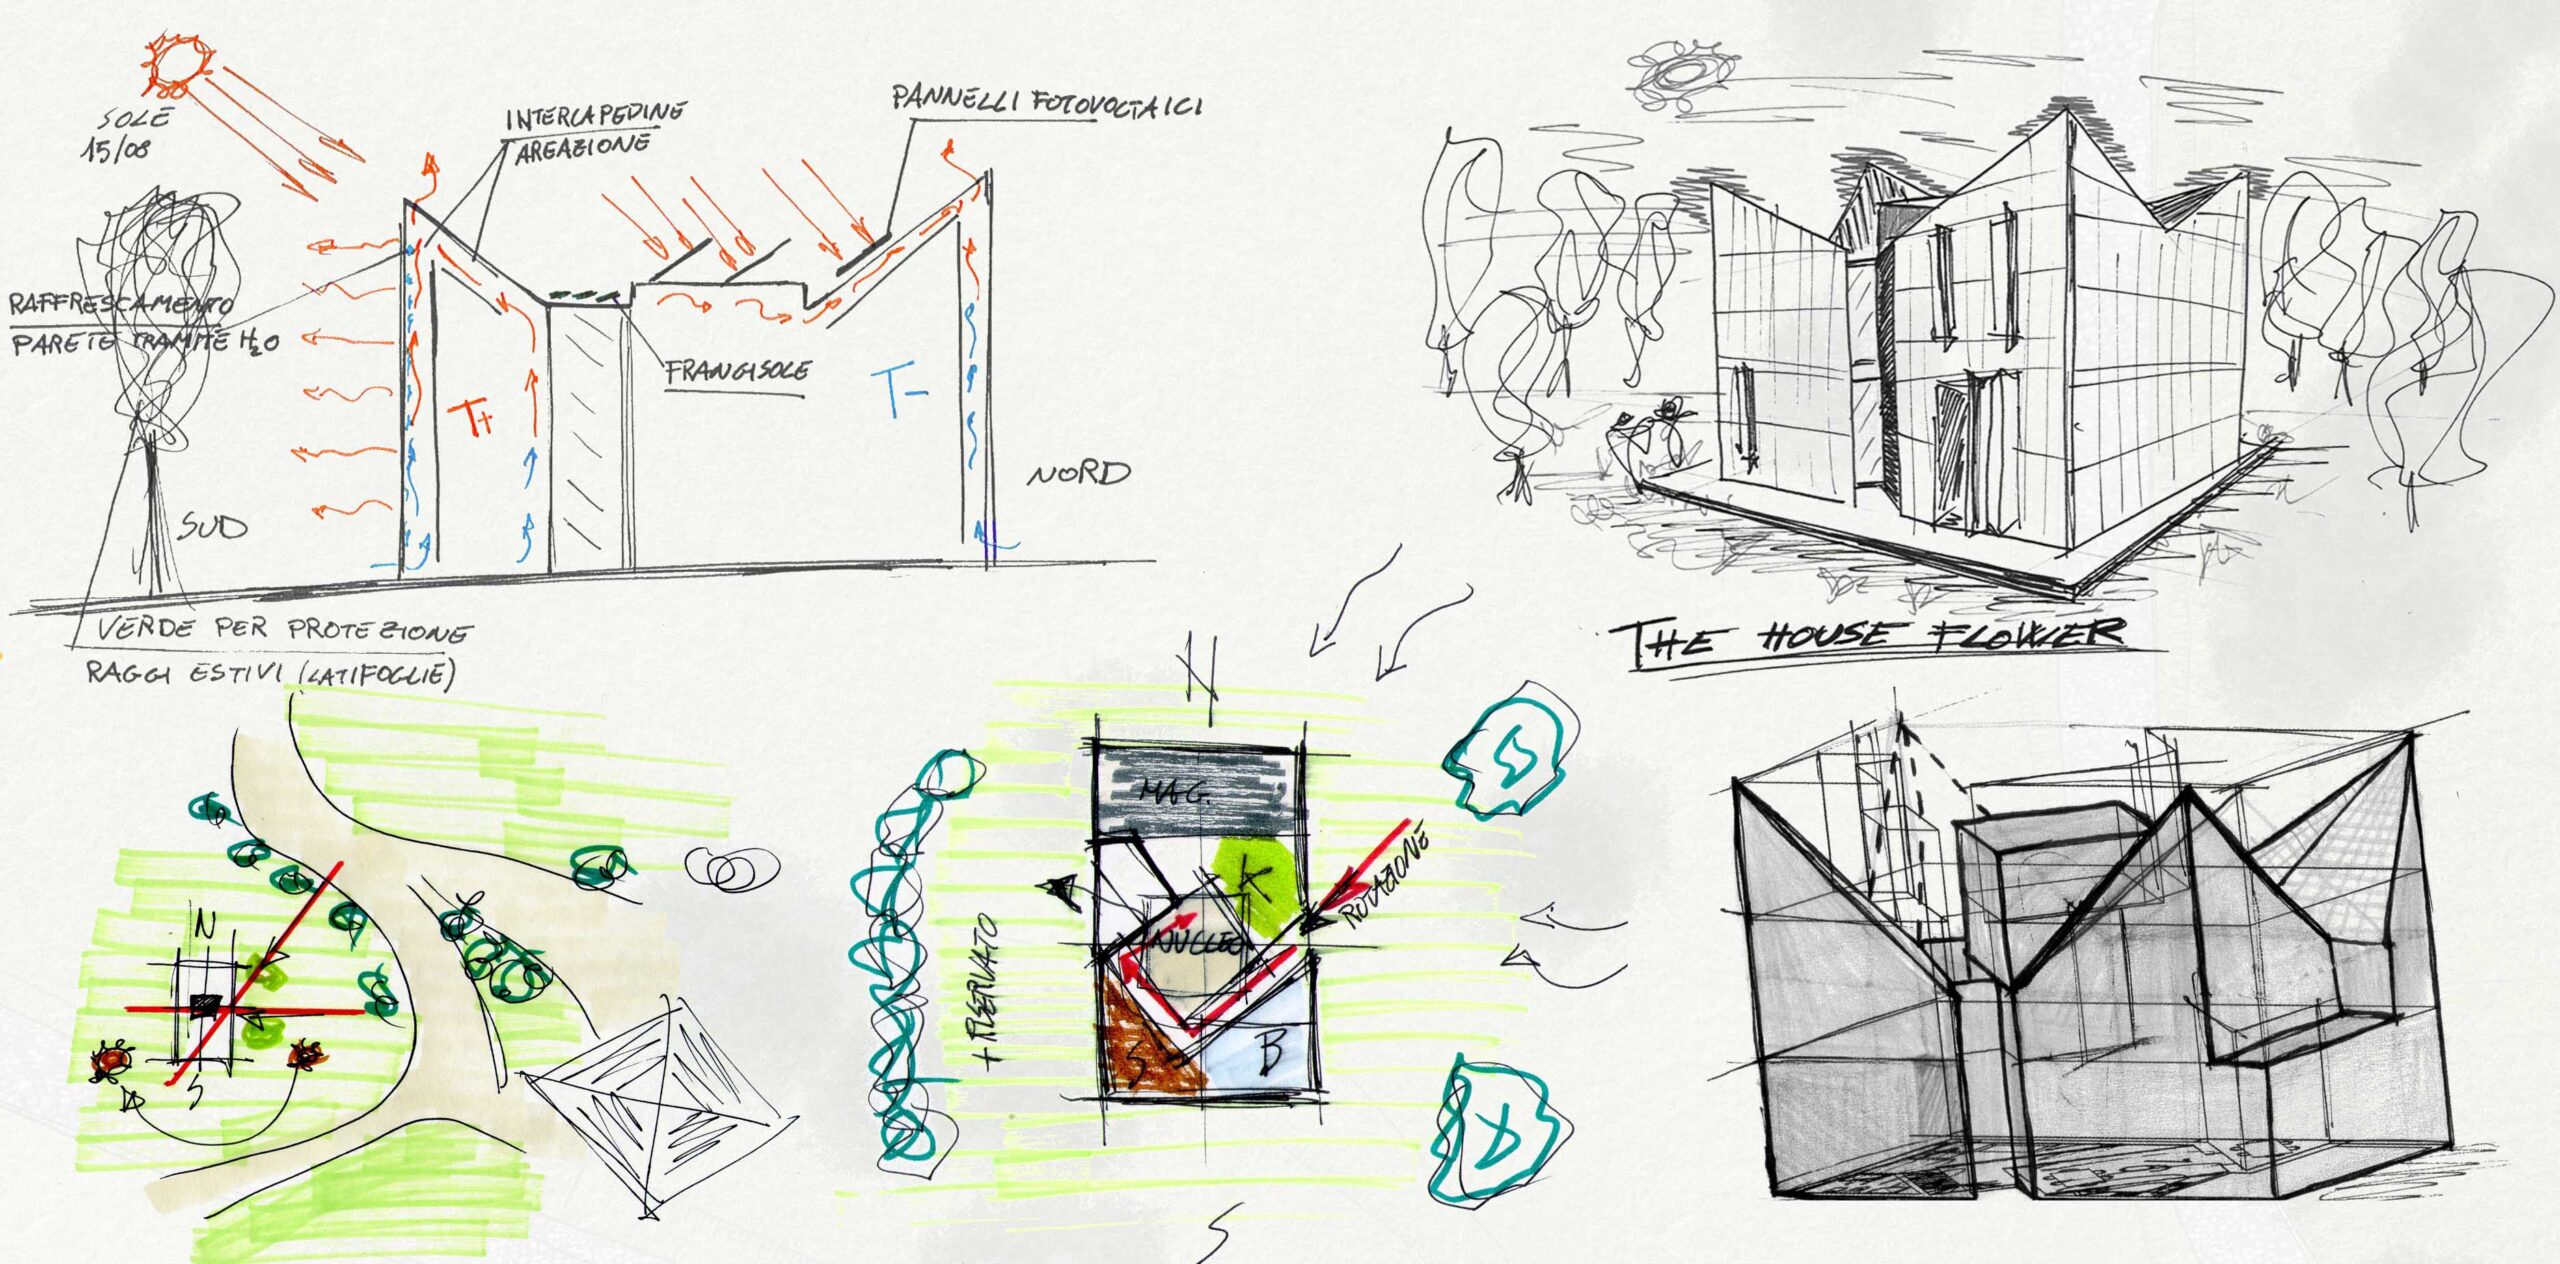 SOLE
15/08
INTERCAPEDINE
AREAZIONE
PANNELLI FOTOVOLTAICI
RAFFRESCAMENTO
PARETE TRAMITE H2O
T+
T-
FRANGISOLE
SUD
NORD
VERDE PER PROTEZIONE
RAGGI ESTIVI (LATIFOGLIE)
THE HOUSE FLOWER
N
S
N
MAG.
K
ROTAZIONE
NUCLEO
+ RISERVATO
S
B
S